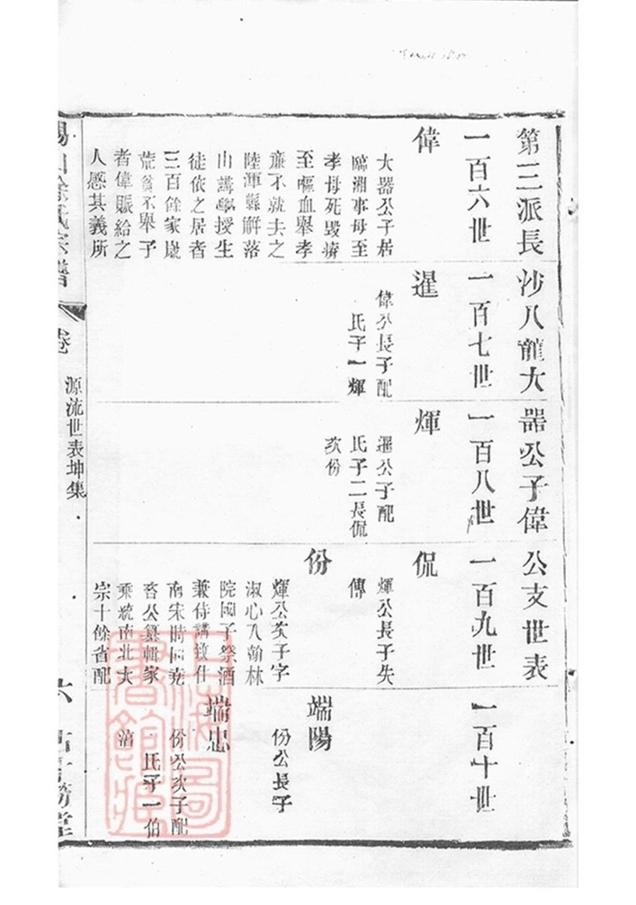 第三派長沙八龍大器公子偉公支世表
一百六世
一百七世
一百八世
一百九世
一百十世
偉
大器公子居
臨湘事母至
孝母死毀瘠
至嘔血舉孝
廉不就去之
陸渾縣解落
山講學授生
徒依之居者
三百餘家歲
荒貧不舉子
者偉賑給之
人感其義所
暹
偉公長子配
氏子一輝
煇
暹公子配
氏子二長侃
次份
侃
煇公長子失
傳
份
煇公次子字
淑心入翰林
院國子祭酒
兼侍講致仕
南宋時同堯
咨公纂輯家
乘統南北大
宗十餘省配
端陽
份公長子
端忠
份公次子配
氏子一伯
源流世表坤集
上海圖書館藏